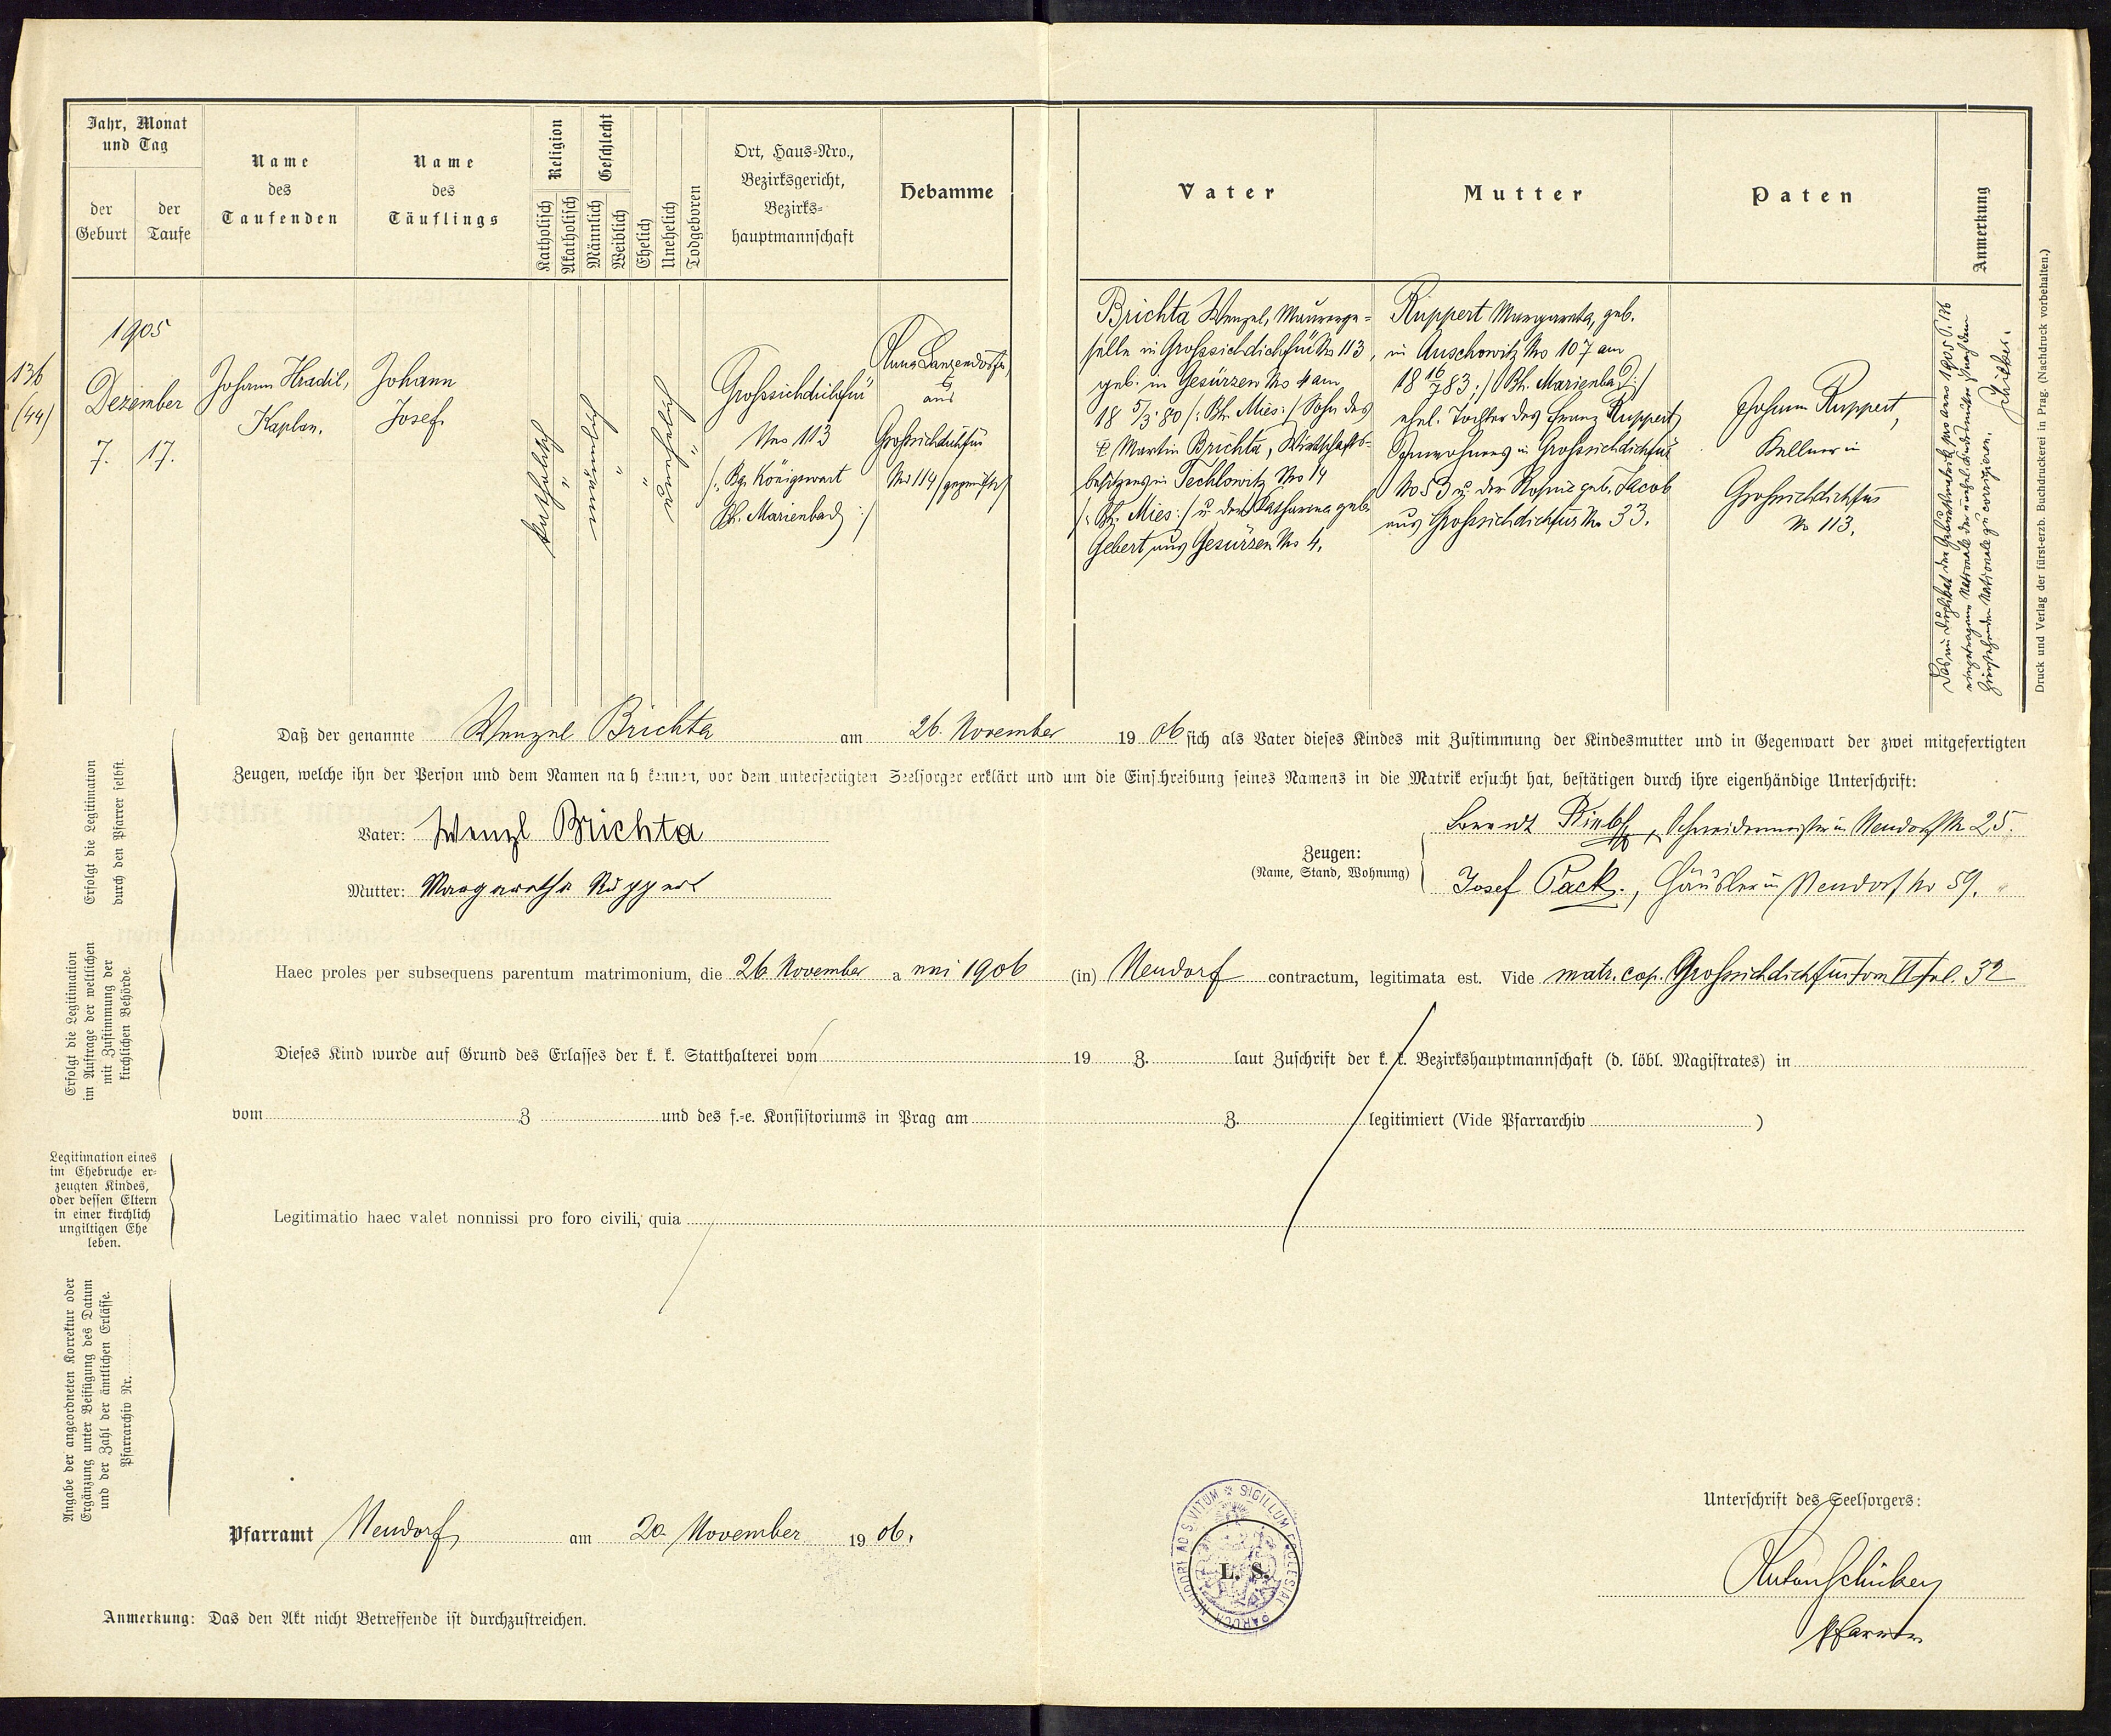 Jahr, Monat
und Tag
der
Geburt
der
Taufe
Name
des
Taufenden
Name
des
Täuflings
Religion
Katholisch
Akatholisch
Geschlecht
Männlich
Weiblich
Ehelich
Unehelich
Todgeboren
Ort, Haus-Nro.,
Bezirksgericht,
Bezirks-
hauptmannschaft
Hebamme
Vater
Mutter
Paten
Anmerkung
136
(44)
1905
Dezember
7. 17.
Johann Hradil,
Kaplan.
Johann
Josef
katholisch
"
männlich
"
"
unehelich
"
Grossichdichfür
Nro 113
/: Bg. Königswart
Bh. Marienbad :/
Anna Lanzendörfer,
aus
Grossichdichfür
No 114 /geprüft/
Brichta Wenzel, Maurerge-
selle in Grossichdichfür No 113,
geb. in Gesürzen No 4 am
18 5/3 80 /: Bh. Mies :/ Sohn des
Martin Brichta, Wirtschafts-
besitzers in Techlowitz No 14
/: Bh. Mies :/ u. der Katharina geb.
Gebert aus Gesürzen No 4.
Ruppert Margareta, geb.
in Auschowitz No 107 am
18 16/7 83 /: Bh. Marienbad :/
ehel. Tochter des Franz Ruppert,
Inwohners in Grossichdichfür
No 53 u. der Rosine geb. Jacob
aus Grossichdichfür No 33.
Johann Ruppert,
Kellner in
Grossichdichfür
No 113.
Das im Duplikat der Geburtsmatrik pro anno 1905 S. 136
eingetragene Nationale der unehel. Kindesmutter ist nach dem
hierstehenden Nationale zu corrigieren.
Druck und Verlag der fürst-erzb. Buchdruckerei in Prag. (Nachdruck vorbehalten.)
Erfolgt die Legitimation
durch den Pfarrer selbst.
Daß der genannte Wenzel Brichta am 26. November 1906 sich als Vater dieses Kindes mit Zustimmung der Kindesmutter und in Gegenwart der zwei mitgefertigten
Zeugen, welche ihn der Person und dem Namen nach kennen, vor dem unterfertigten Seelsorger erklärt und um die Einschreibung seines Namens in die Matrik ersucht hat, bestätigen durch ihre eigenhändige Unterschrift:
Vater: Wenzl Brichta
Mutter: Margaretha Ruppert
Zeugen:
(Name, Stand, Wohnung)
Schneidermeister in Neudorf No 25.
Josef Pack., Häusler in Neudorf No 59.
Erfolgt die Legitimation
im Auftrage der weltlichen
mit Zustimmung der
kirchlichen Behörde.
Haec proles per subsequens parentum matrimonium, die 26. November anni 1906 (in) Neudorf contractum, legitimata est. Vide matr. cop. Grossichdichfür tom VI fol. 32
Dieses Kind wurde auf Grund des Erlasses der k. k. Statthalterei vom 19 Z. laut Zuschrift der k. k. Bezirkshauptmannschaft (d. löbl. Magistrates) in
vom Z und des f.-e. Konsistoriums in Prag am Z. legitimiert (Vide Pfarrarchiv )
Legitimation eines
im Ehebruche er-
zeugten Kindes,
oder dessen Eltern
in einer kirchlich
ungiltigen Ehe
leben.
Legitimatio haec valet nonnissi pro foro civili, quia
Angabe der angeordneten Korrektur oder
Ergänzung unter Beifügung des Datum
und der Zahl der ämtlichen Erlässe.
Pfarrarchiv Nr.
Pfarramt Neudorf am 20. November 1906.
SIGILLUM ECCLESIAE PAROCH. NEUDORF AD S. VITUM
L. S.
Unterschrift des Seelsorgers:
Pfarrer
Anmerkung: Das den Akt nicht Betreffende ist durchzustreichen.